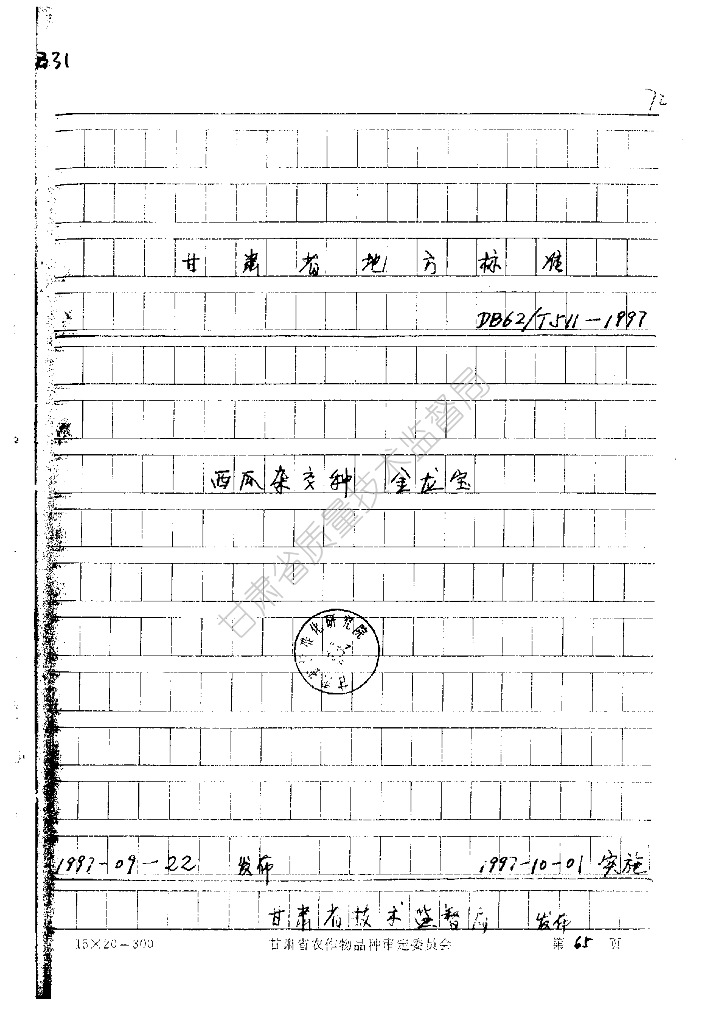 B31
72
甘肃省地方标准
DB62/T511—1997
西瓜杂交种 金龙宝
甘肃省质量技术监督局
准化研究院
1997-09-22 发布 1997-10-01 实施
甘肃省技术监督局 发布
15×20=300 甘肃省农作物品种审定委员会 第 65 页